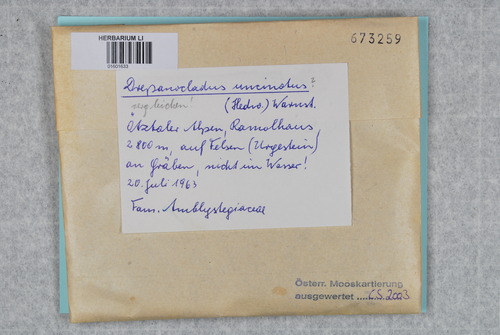 HERBARIUM LI
673259
Drepanocladus uncinatus?
vergleichen! (Hedw.) Warnst.
Ötztaler Alpen, Ramolhaus,
2800m, auf Felsen (Urgestein)
an Gräben, nicht im Wasser!
20. Juli 1963
Fam. Amblystegiaceae
Österr. Mooskartierung
ausgewertet ....C.S. 2003